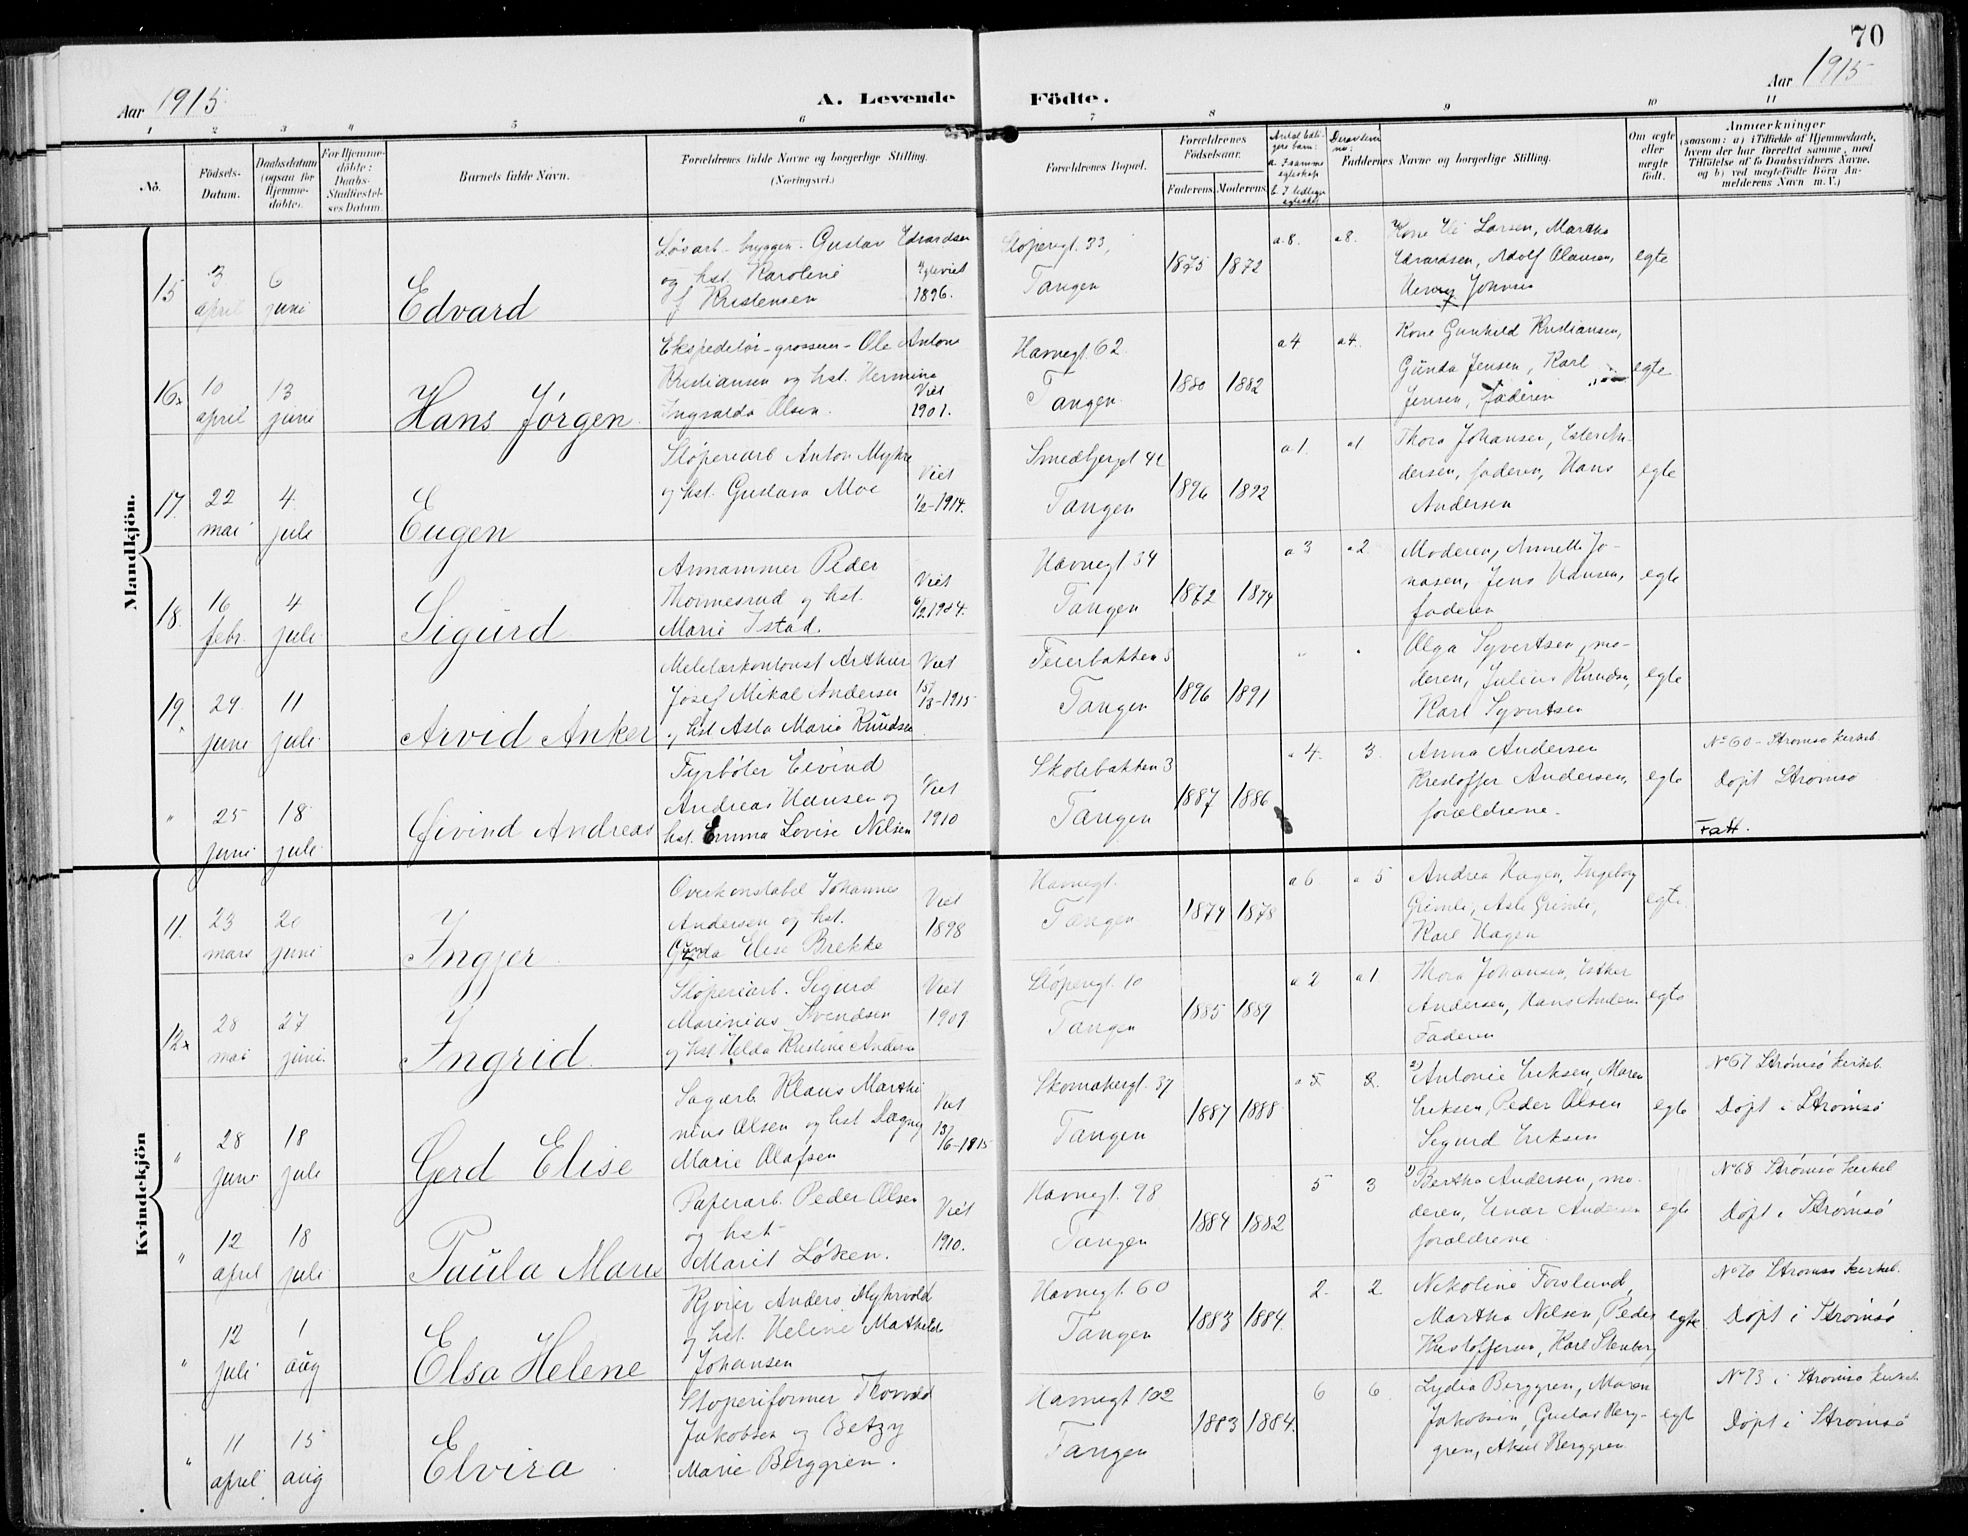 70
Aar 1915
A. Levende Födte.
Aar 1915
1 2 3 4 5 6 7 8 9 10 11
No.
Födsels-
Datum.
Daabsdatum
(ogsaa for
Hjemme-
döbte).
For Hjemme-
döbte:
Daabs-
Stadfæstel-
ses Datum.
Barnets fulde Navn.
Forældrenes fulde Navne og borgerlige Stilling.
(Næringsvei.)
Forældrenes Bopæl.
Forældrenes
Födselsaar.
Faderens. Moderens.
Faddernes Navne og borgerlige Stilling.
Om ægte
eller
uægte
födt.
Anmærkninger
(saasom: a) i Tilfælde af Hjemmedaab,
hvem der har forrettet samme, med
Tilföielse af to Daabsvidners Navne,
og b) ved uægtefödte Börn An-
melderens Navn m. V.)
Mandkjön.
15
3
april
6
juni
Edvard
Løsarb. bryggen. Gustav Edvardsen
og hst. Karoline
f. Kristensen
1896.
Støperigt. 33,
Tangen
1875 1872
a. 8. a 8.
Larsen, Martha
Edvardsen, Adolf Olausen,
egte
16x
10
april
13
juni
Hans Jörgen
Ekspeditør - grosserer - Ole Anton
Kristiansen og hst. Hermina
Ingvalda Olsen.
Viet
1901.
Havnegt. 62.
Tangen.
1880 1882
a 4 a 4.
Kone Gunhild Kristiansen,
Gunda Jensen, Karl
Jensen, faderen
egte
17.
22
mai
4.
juli
Eugen
Støperiarb Anton Myhre
og hst. Gustava Moe
Viet
1/2-1914.
Smedbjerget 42
Tangen
1896 1892
a 1. a 1
Thora Johansen, Ester An-
dersen, faderen, Hans
Andersen
egte
18.
16
febr.
4
juli
Sigurd
Peder
og hst.
Marie Istad.
Viet
Havnegt 34
Tangen
1872 1874
a 3 a 2
Moderen, Annette Jo-
nasen, Jens Hansen,
faderen
egte
19.
29.
juni
11
juli
Arvid Anker
Arthur
Josef Mikal Andersen
og hst Asta Marie Knudsen
Viet
Feierbakken 5
Tangen
1896 1891
Olga Syvertsen, mo-
deren, Julius Knudsen,
Karl Syvertsen
egte
"
25
juni
18
juli
Øivind Andreas
Fyrbøter Eivind
Andreas Hansen og
hst. Emma Lovise Nilsen
Viet
1910
Skolebakken 3
Tangen
1887 1886
" 4. 3.
Anna Andersen
Kristoffer Andersen,
forældrene.
egte
No 60 - Strømsø kirkeb.
Døpt Strømsø
Fatt.
Kvindekjön
11.
23
mars
20
juni
Ingjer
Overkonstabel Johannes
Andersen og hst.
Elise Brekke
Viet
1898
Havnegt.
Tangen
1874 1878
a 6 a 5
Andrea Hagen, Ingeborg
Grimli, Asle Grimli,
Karl Hagen
egte.
12x
28
mai
27
juni.
Ingrid
Støperiarb. Sigurd
Marinius Svendsen
og hst Helda Kristine Andersen
Viet
1909.
Støperigt. 10
Tangen
1885 1889
a 2 a 1
Thora Johansen, Esther
Andersen, Hans Andersen
Faderen
egte
"
28
juni
18
juli
Gerd Elise
Sagarb. Klaus Marthi
nius Olsen og hst Dagny
Marie Olafsen
Viet
13/6-1915
Skomakergt. 37
Tangen
1887 1888
a 5 2.
2) Antonie Eriksen, Maren
Eriksen, Peder Olsen
Sigurd Eriksen
egte
No 67 Strømsø kirkeb.
Døpt i Strømsø
"
12
april
18
juli
Paula Marie
Papirarb. Peder Olsen
og hst
Marit Løken.
Viet
1910.
Havnegt. 98
Tangen
1884 1882
5 3
1) Bertha Andersen, mo-
deren, Einar Andersen
forældrene
egte
No 68 Strømsø kirkeb
Døpt i Strømsø
"
12
juli
1
aug
Elsa Helene
Kjører Anders Myhrvold
og hst. Helene Mathilde
Johansen
Havnegt. 60
Tangen
1883 1884.
2. 2
Nikoline Forslund,
Martha Nilsen, Peder
Kristoffersen, Karl Stenberg
egte
No 70 Strømsø kirkeb.
Døpt i Strømsø
"
11
april
15
aug
Elvira
Støperiformer Thorvald
Jakobsen og Betzy
Marie Berggren.
Havnegt 102
Tangen
1883 1884.
6 6
Lydia Berggren, Maren
Jakobsen, Gustav Berg-
gren, Aksel Berggren
egte
No 73 i Strømsø kirkeb
Døpt i Strømsø